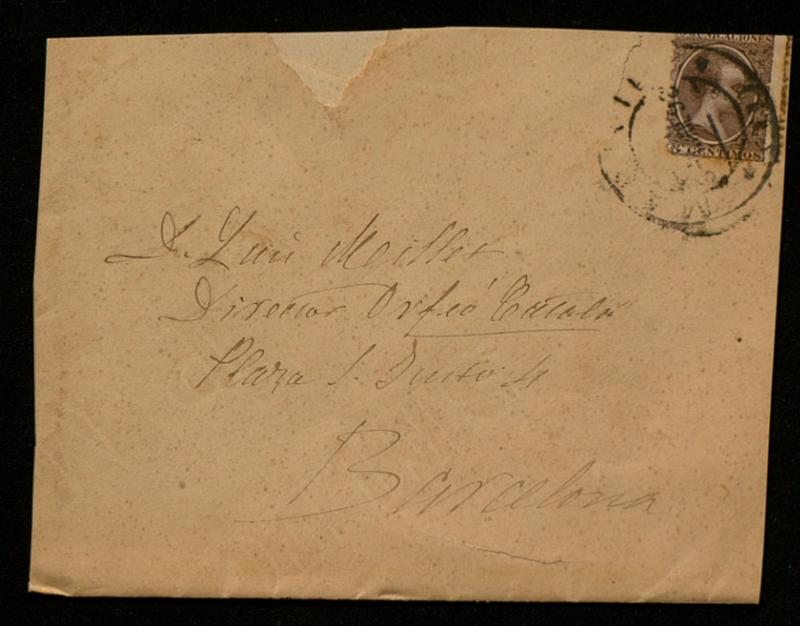 COMUNICACIONES
5 CENTIMOS
D. Luis Millet
Director Orfeó Català
Plaza S. Justo 4
Barcelona